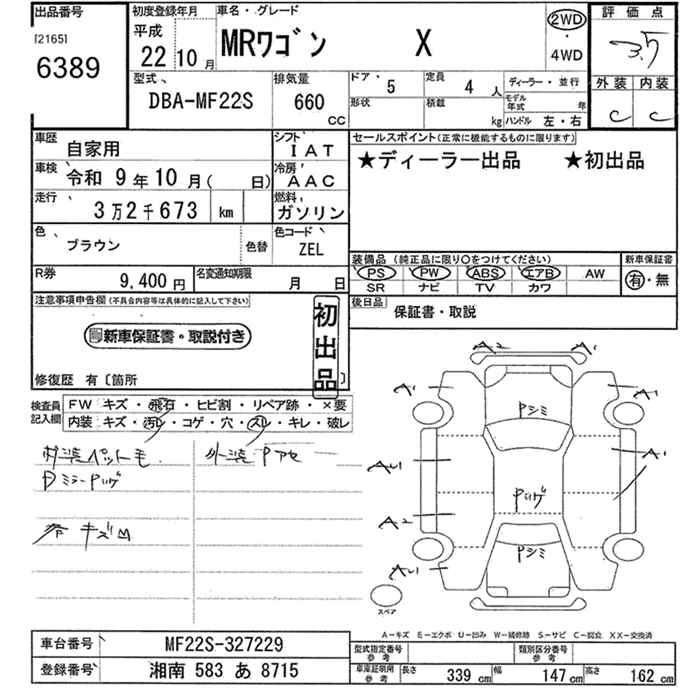 出品番号
[2165]
6389
初度登録年月
平成
22年10月
車名・グレード
MRワゴン X
2WD
・
4WD
評価点
3.5
外装 内装
C C
型式
DBA-MF22S
排気量
660
CC
ドア 5
定員 4 人
形状
積載 kg
ディーラー・並行
モデル年式 年
ハンドル 左・右
車歴 自家用
シフト IAT
車検 令和 9年10月( 日)
冷房 AAC
走行 3万2千673 km
燃料 ガソリン
色 ブラウン
色替
色コード ZEL
R券 9,400円
名変通知期限 月 日
セールスポイント(正常に機能するものに限ります)
★ディーラー出品 ★初出品
装備品(純正品に限り○をつけてください)
PS PW ABS エアB AW
SR ナビ TV カワ
新車保証書
有・無
後日品
保証書・取説
注意事項申告欄(不具合内容等は具体的に記入して下さい)
新車保証書・取説付き
初出品
修復歴 有〔箇所 〕
検査員記入欄
FW キズ・飛石・ヒビ割・リペア跡・×要
内装 キズ・汚レ・コゲ・穴・スレ・キレ・破レ
内装ペットモ
外装Pアセ
キズ凹
A2 A1
A1 A1
Pシミ
AU1 A1
Pハゲ
A2
Pシミ
AU1
スペア
A-キズ E-エクボ U-凹み W-補修跡 S-サビ C-腐食 XX-交換済
車台番号 MF22S-327229
登録番号 湘南 583 あ 8715
型式指定番号 参考
類別区分番号 参考
車庫証明用 参考
長さ 339 cm 幅 147 cm 高さ 162 cm